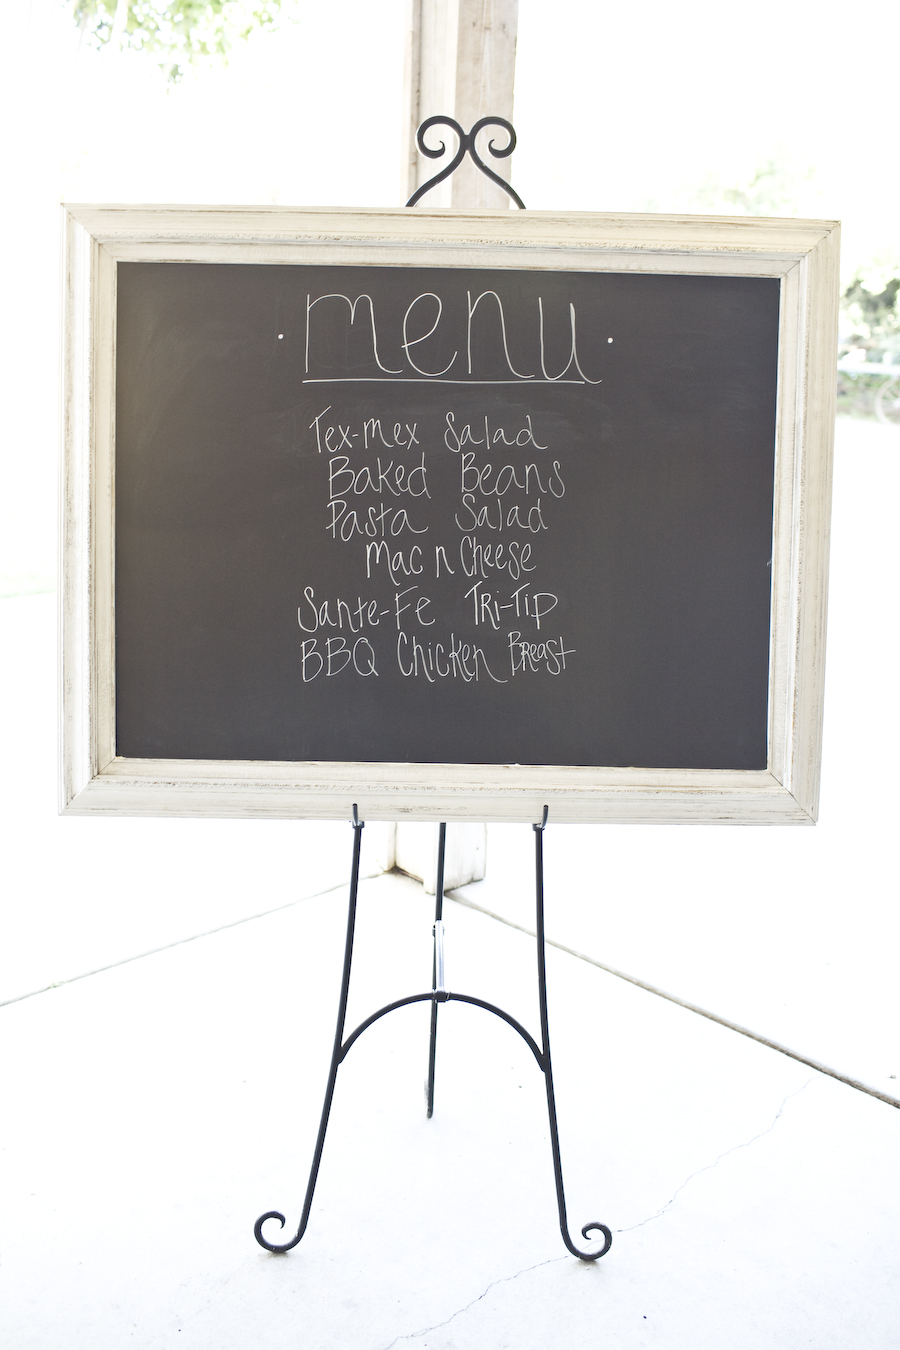 . menu .
Tex-Mex Salad
Baked Beans
Pasta Salad
Mac n Cheese
Sante-Fe Tri-Tip
BBQ Chicken Breast